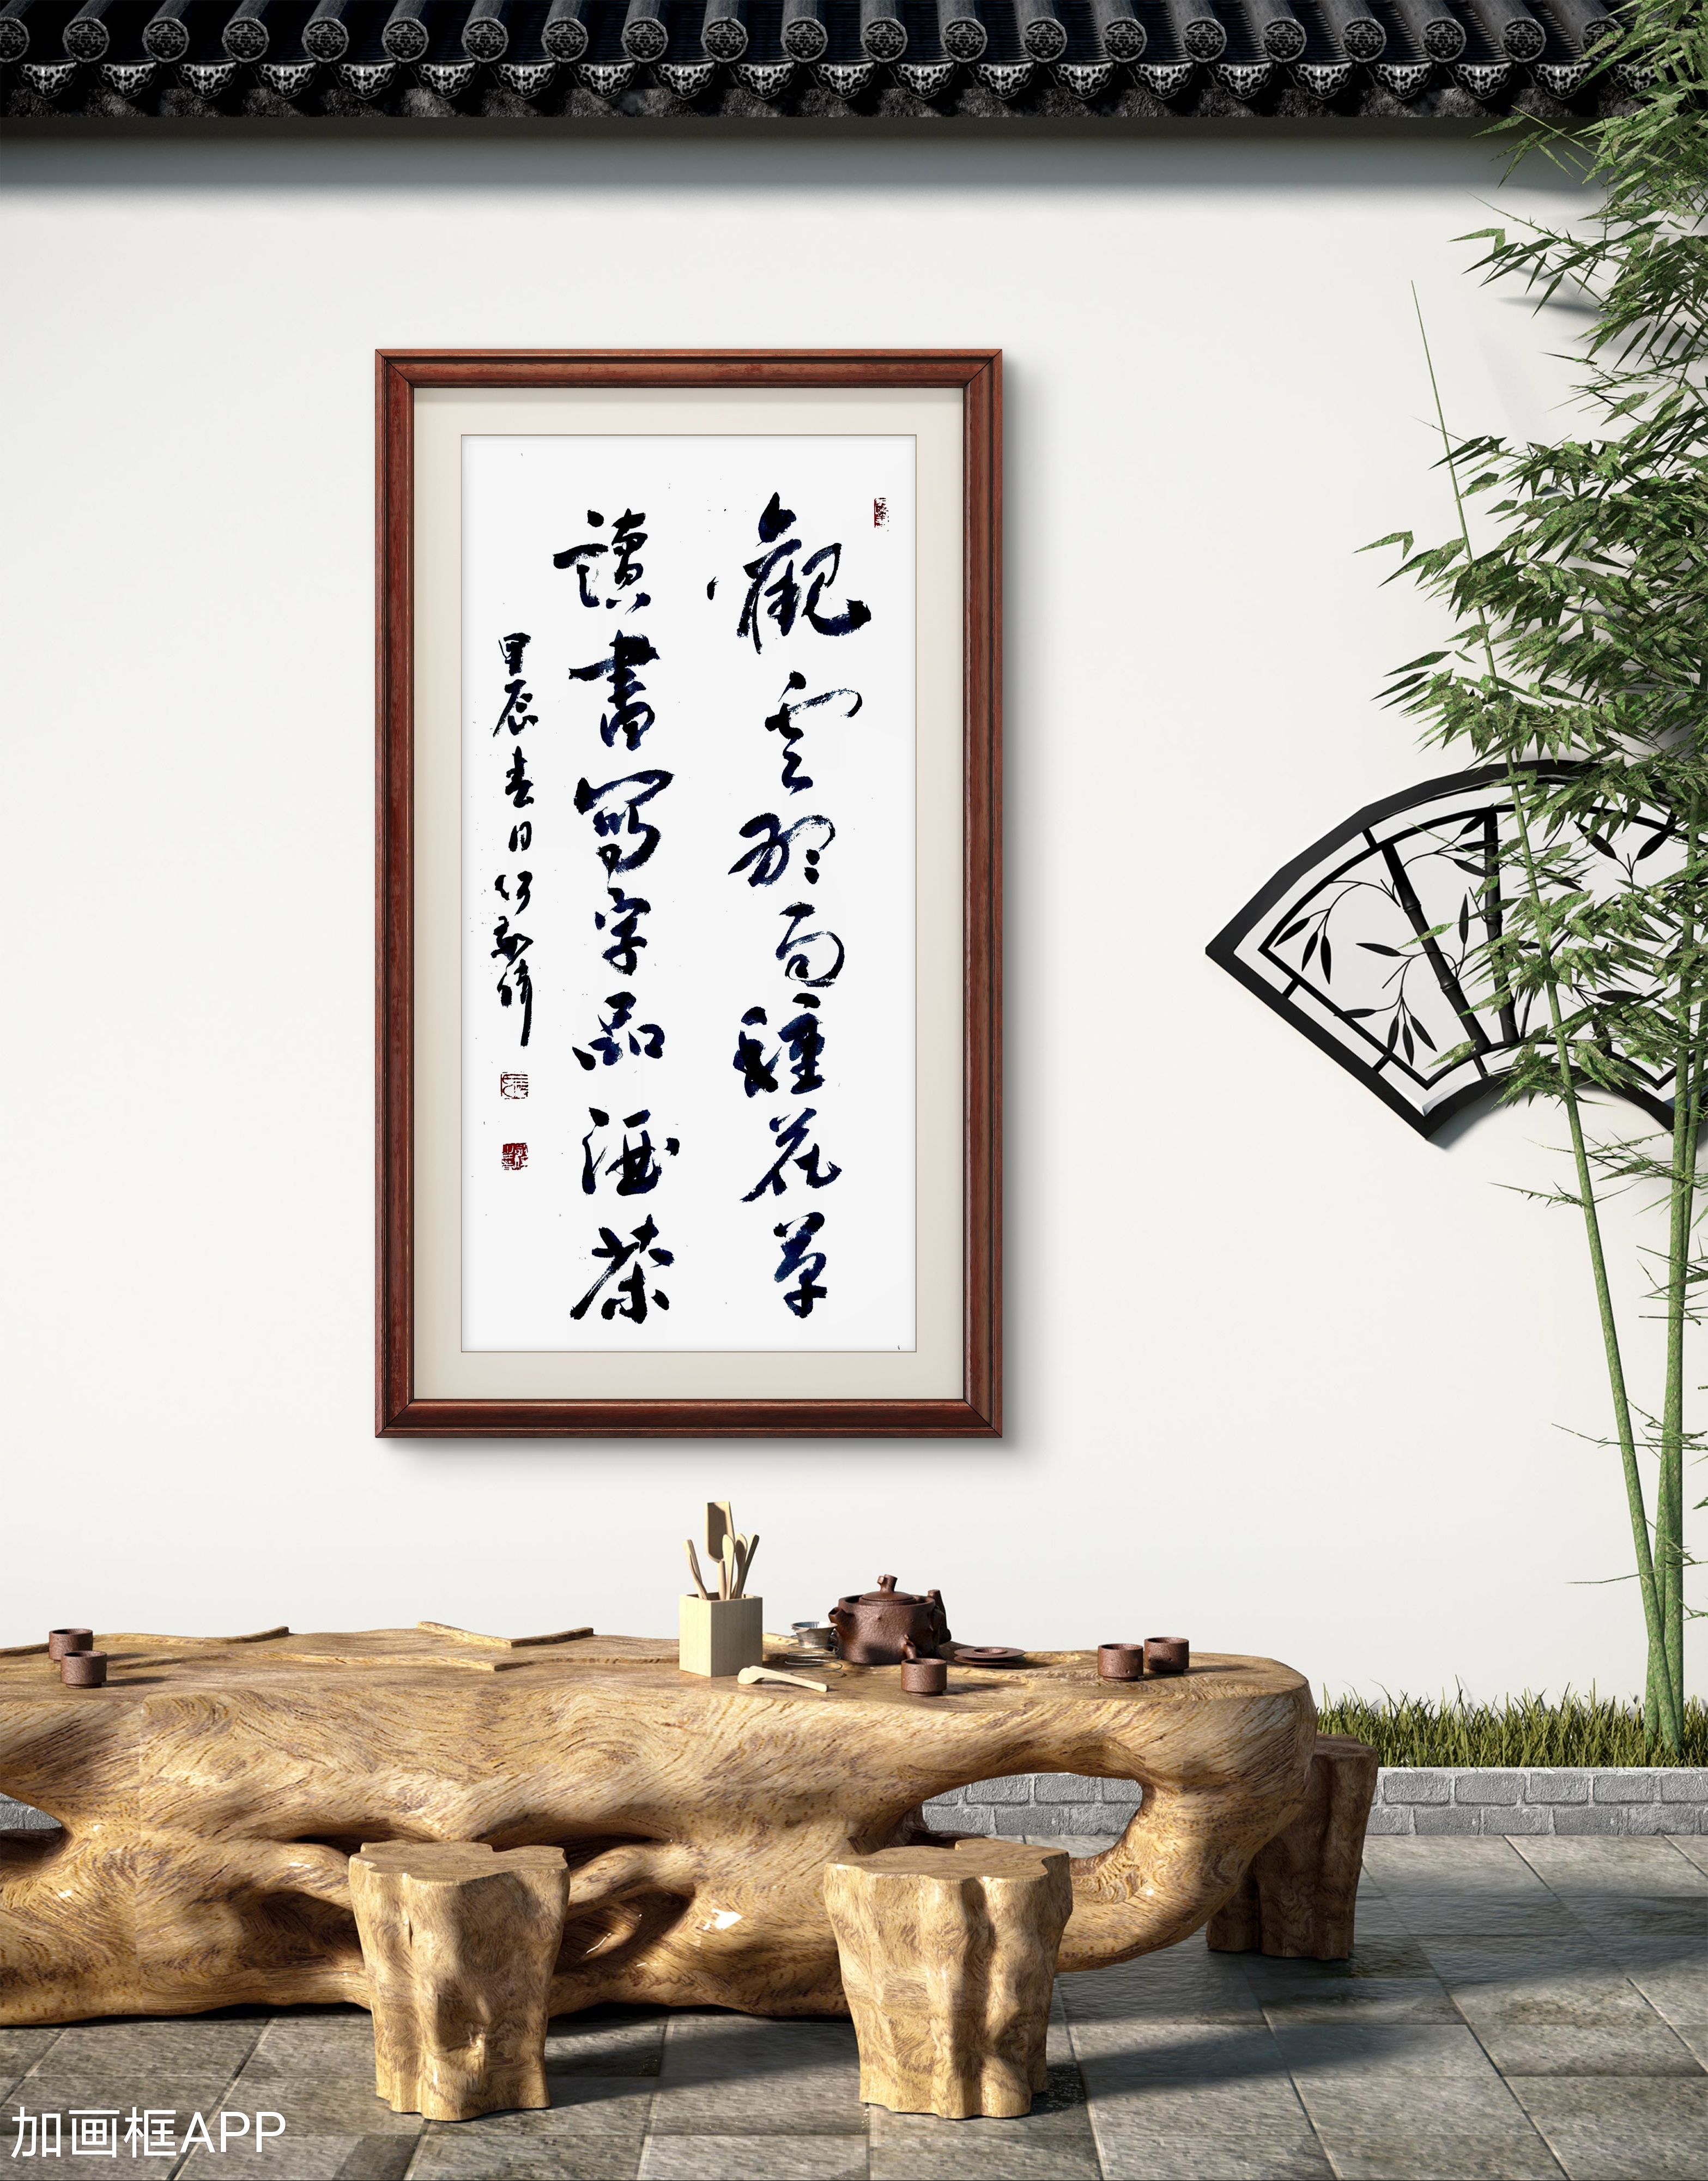 觀雲聽雨種花草
讀書寫字品酒茶
甲辰春日何
加画框APP